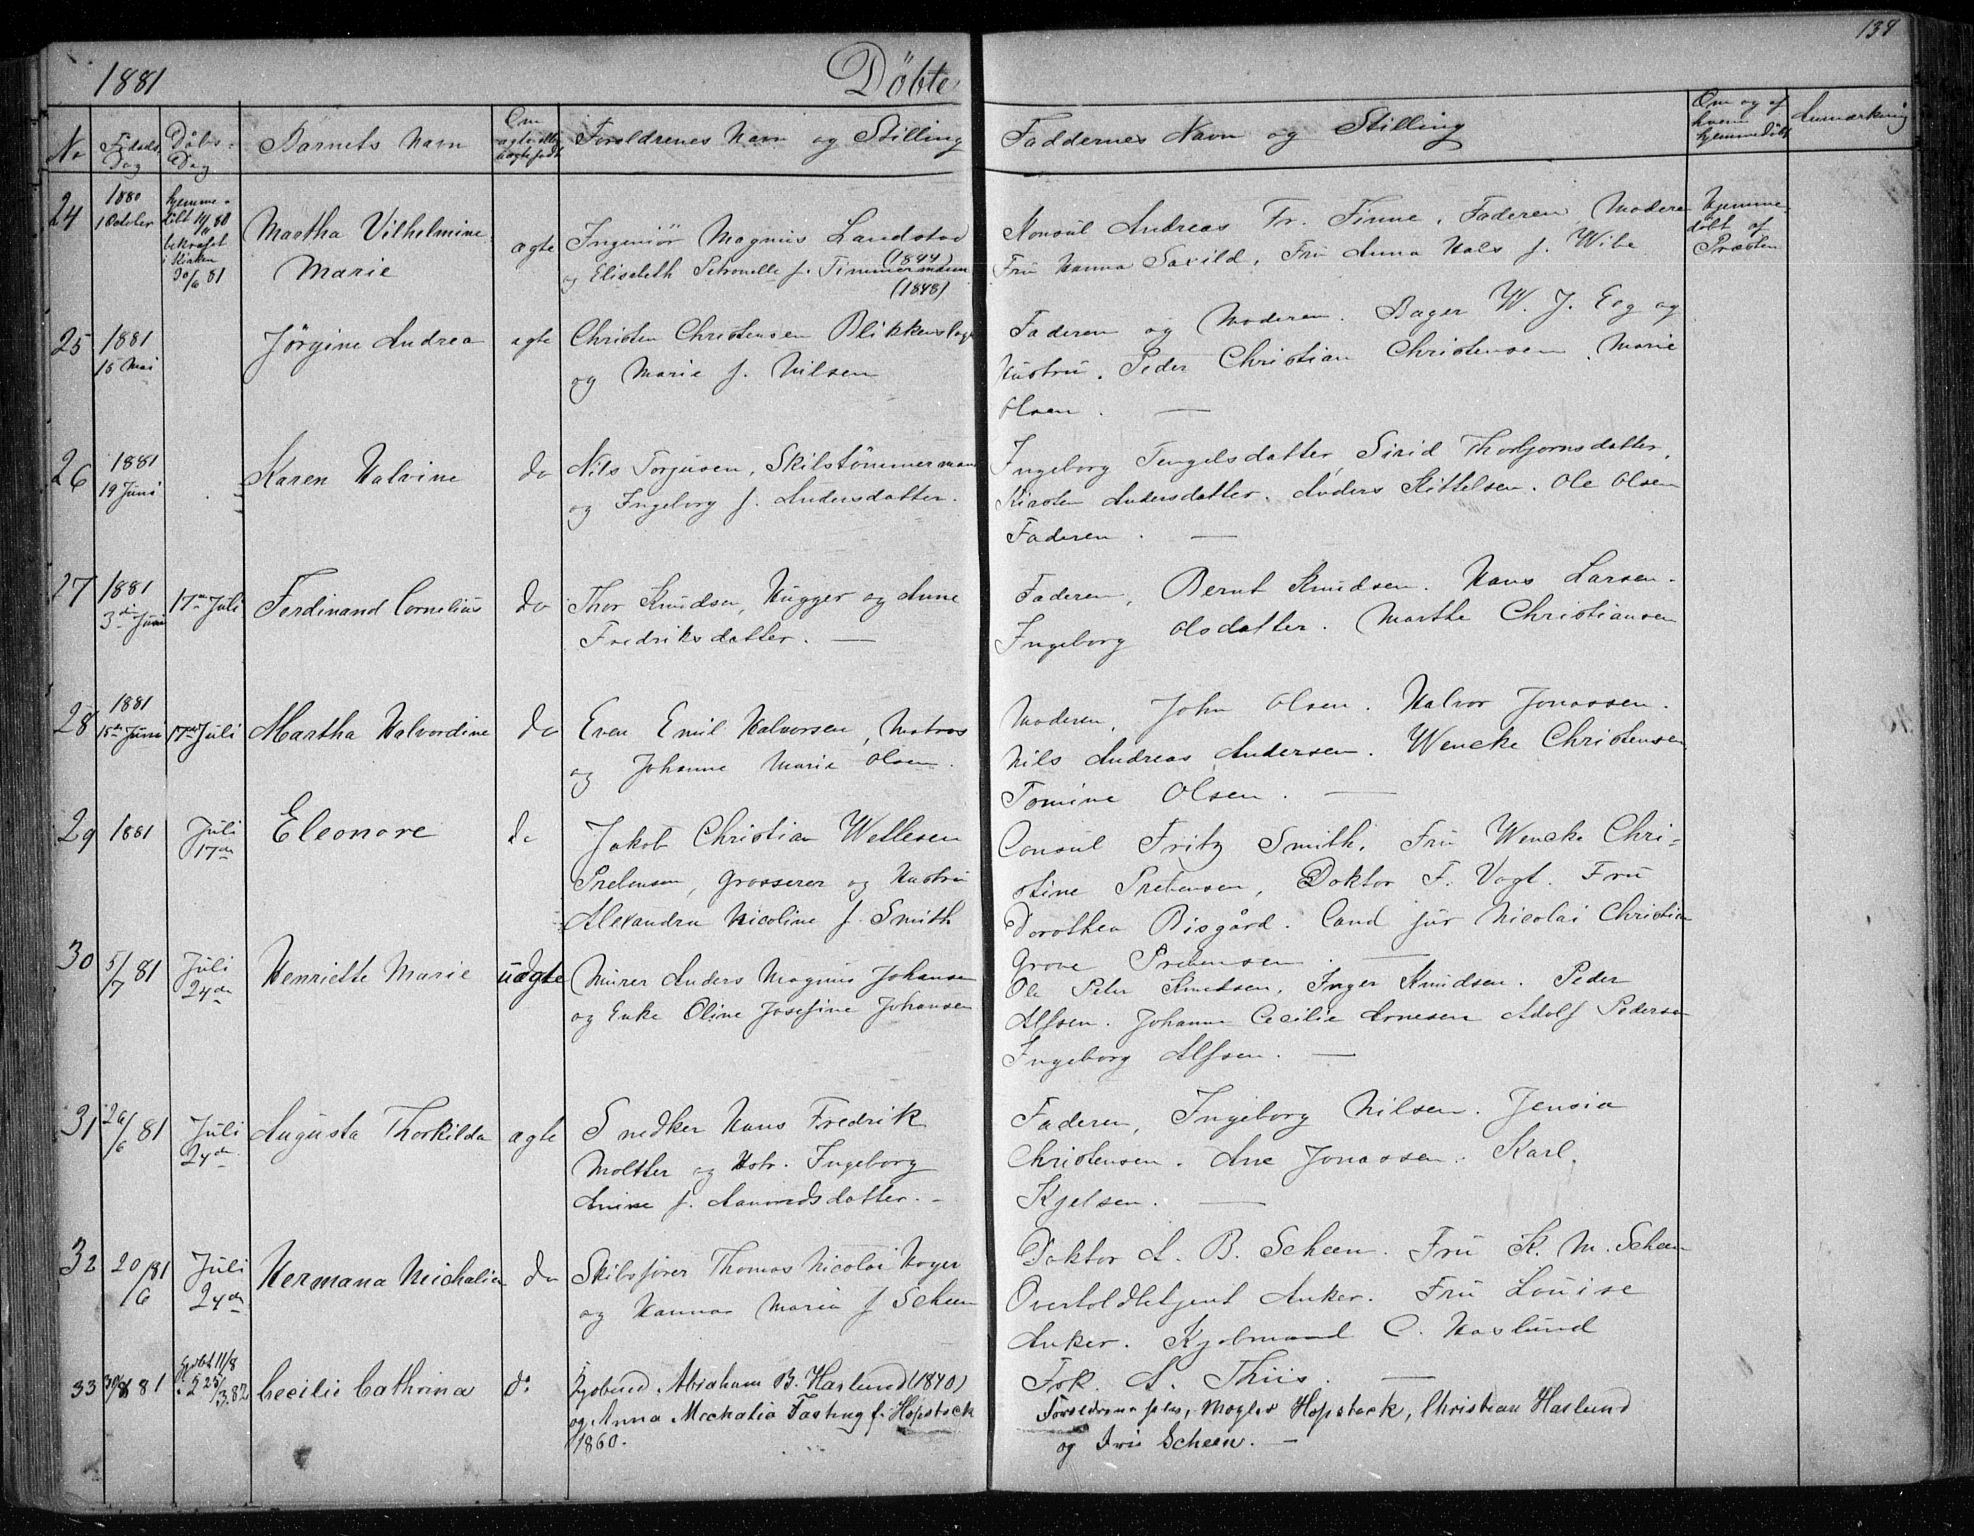 1881 Döbte 138
No Födsels Dag Döbs-Dag Barnets Navn Om ægte eller uægte født Foreldrenes Navn og Stilling Faddernes Navn og Stilling Om og af hvem hjemmedöbt Anmærkning
24 1880 1 October hjemme-döbt 80 bekræft i Kirken 30/6 81 Martha Vilhelmine Marie ægte
Ingeniör Magnus Landstad (1844)
og Elisabeth Petronelle f. Timmermann (1848)
Konsul Andreas Fr. Finne, Faderen, Moderen
Fru Hanna Saxild, Fru Anna Hals f. Wibe
Hjemme-döbt af Præsten
25 1881 15 Mai Jörgine Andrea ægte
Christen Christensen Blikkenslager
og Marie f. Nilsen
Faderen og Moderen. Bager W. J. Eeg og
Hustru. Peder Christian Christensen. Marie
Olsen. —
26 1881 19 Juni Karen Halvine do
Nils Torjusen, Skibstömmermand
og Ingeborg f. Andersdatter.
Ingeborg Tengelsdatter, Sirid Thorbjornsdatter,
Kirsten Andersdatter. Anders Kittelsen. Ole Olsen
Faderen. —
27 1881 3die Juni 17de Juli Ferdinand Cornelius do
Thor Knudsen, Hugger og Anne
Fredriksdatter. —
Faderen, Bernt Knudsen. Hans Larsen.
Ingeborg Olsdatter. Marthe Christiansen
28 1881 15de Juni 17de Juli Martha Halvordine do
Even Emil Halvorsen, Matros
og Johanne Marie Olsen.
Moderen, John Olsen. Halvor Jonassen.
Nils Andreas Andersen. Wencke Christensen
Tomine Olsen. —
29 1881 Juli 17de Eleonore do
Jakob Christian Wellesen
Prebensen, Grosserer og Hustru
Alexandra Nicoline f. Smith
Consul Fritz Smith. Fru Wencke Chri-
stine Prebensen, Doktor F. Vogt. Fru
Dorothea Bisgård. Cand jur Nicolai Christian
Grove Prebensen. —
30 5/7 81 Juli 24de Henriette Marie uægte
Murer Anders Magnus Johansen
og Enke Oline Josefine Johansen
Ole Peter Knudsen, Inger Knudsen. Peder
Alfsen. Johanne Cecilie Arnesen Adolf Pedersen
Ingeborg Alfsen. —
31 26/6 81 Juli 24de Augusta Thorkilda ægte
Snedker Hans Fredrik
Moltter og Hstr. Ingeborg
Anine f. Aanundsdatter. -
Faderen, Ingeborg Nilsen. Jensia
Christensen. Ane Jonassen. Karl
Kjelsen. —
32 20/6 81 Juli 24de Hermana Michalia do
Skibsförer Thomas Nicolai Hoyer
og Hanna Maria f Scheen
Doktor A. B. Scheen. Fru K. M. Scheen
Overtoldbetjent Anker. Fru Louise
Anker. Kjöbmand C. Haslund
Frk. A. Thiis. —
33 81 11/8 25/3.82 Cecilie Cathrina do
Kjøbmd. Abraham B. Haslund (1840)
og Anna Michalia Fasting f. Hopstock
1860.
Forældrene, Mægler Hopstock, Christian Haslund
og Fru Scheen. —